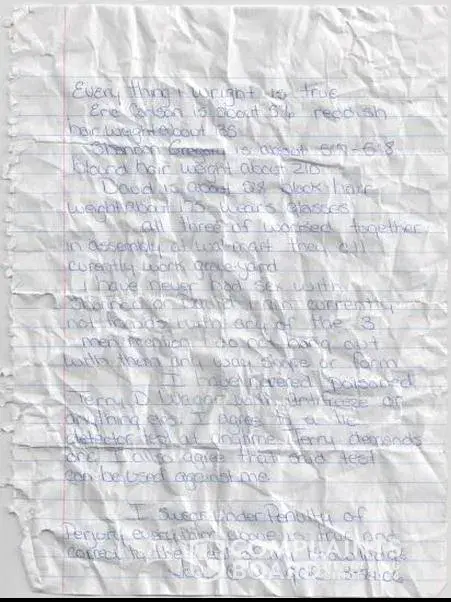 Every thing i wright is true
Eric Carson is about 5'6 reddish
hair weight about 135
Shanon Gregory is about 5'7-5'8
blound hair weight about 210
David is about 5'8 black hair
weight about 175 wears glasses
all three of worked together
in assembly at wal-mart they all
curently work grave-yard
I have never had sex with
Shannon or David I am currently
not friends with any of the 3
men mention I do not hang out
with them any way shape or form
I have never poisoned
Terry D with antifreeze or
anything els. I agree to a lie
detector test at anytime Terry demands
one I also agree that said test
can be used against me
I swear under Penalty of
Perjury every thing above is true and
correct to the
COMPLAINTS
BOARD